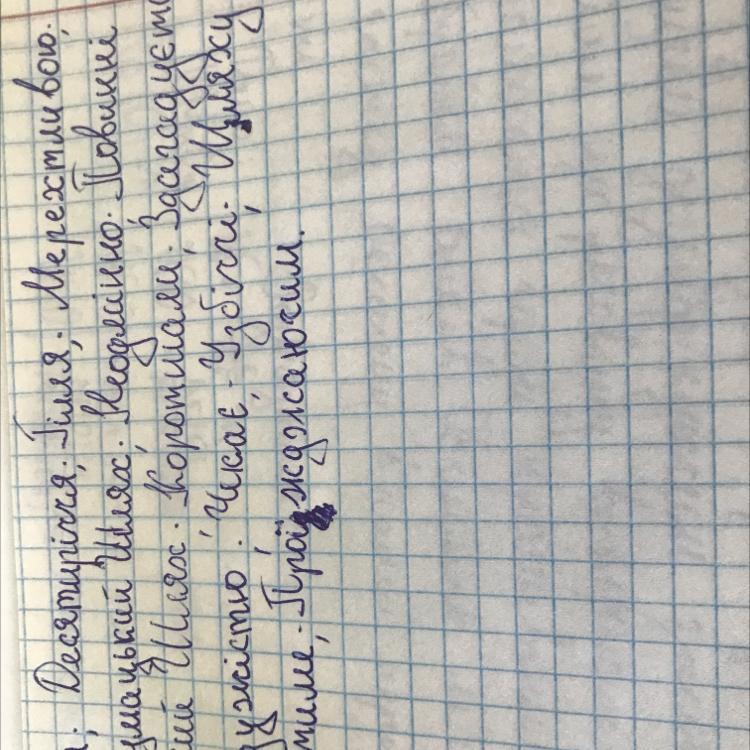 Десятиріччя, Гілля, Мерехтливою.
умацький Шлях. Неодмінно. Повинні
Шлях. Коротшали. Здогадуєть
ужістю. Чекає, Узбіччі. Шляху
тиме, Проїжджаючим.